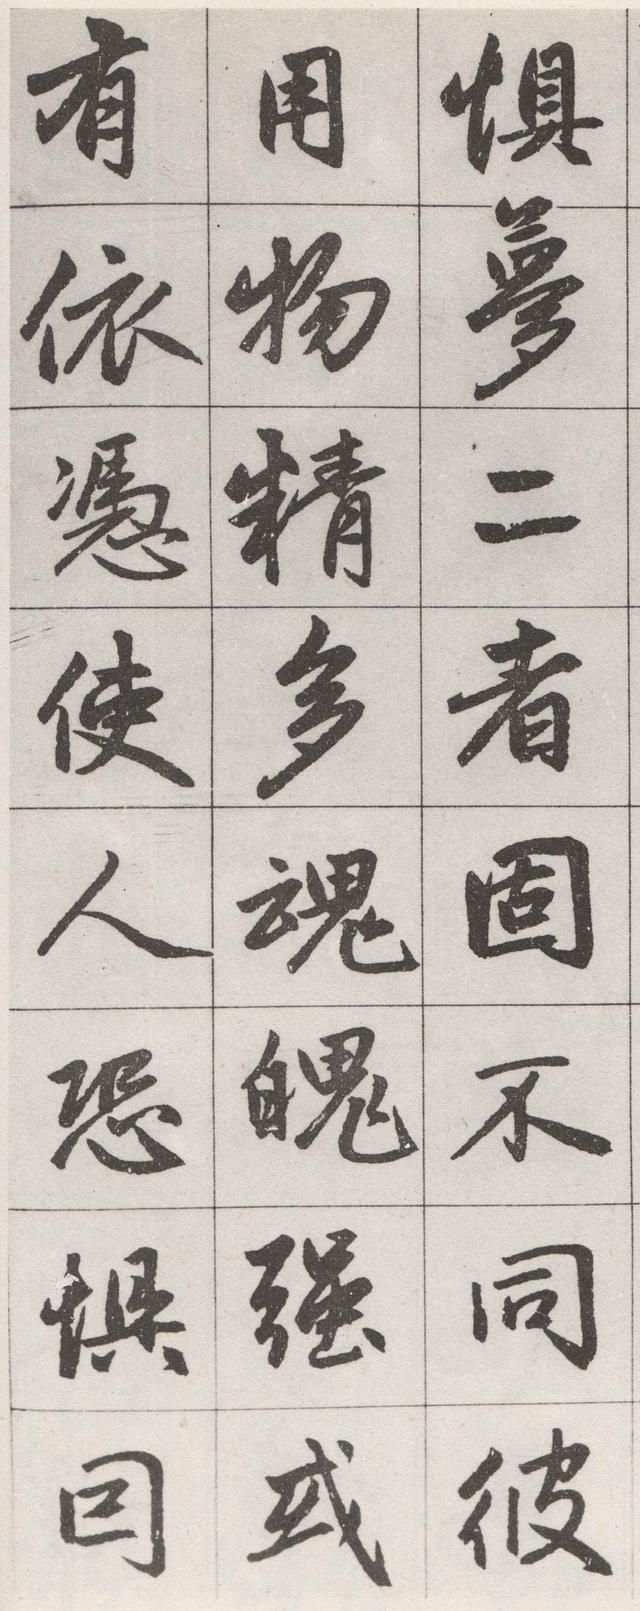 惧夢二者固不同彼
用物精多魂魄强或
有依憑使人恐惧回